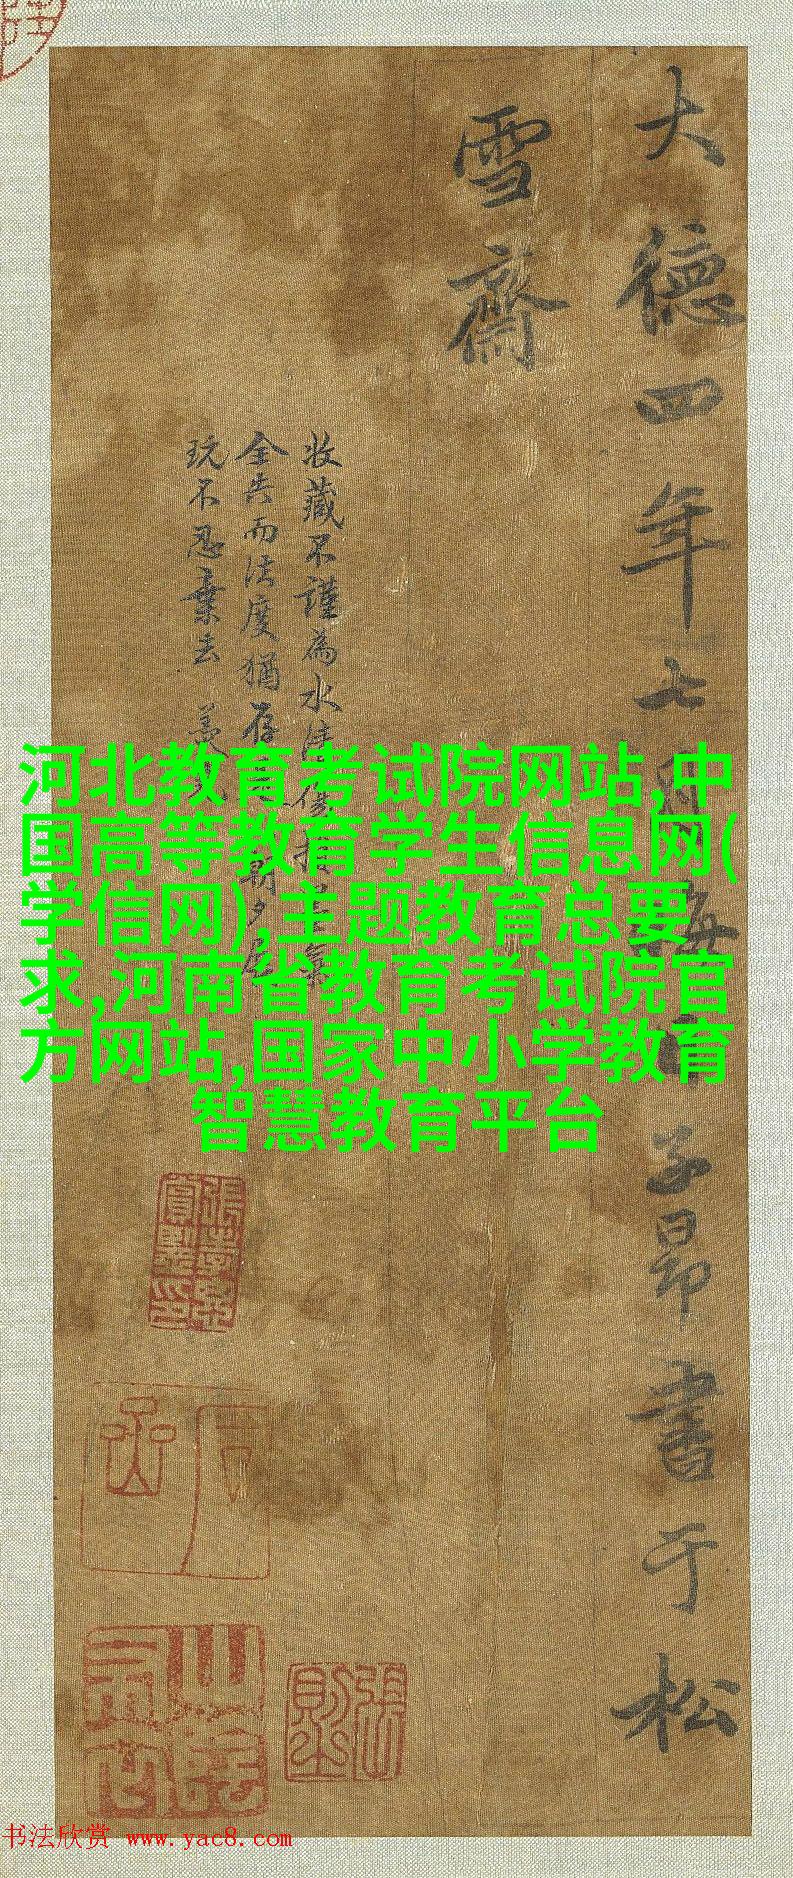 大德四年七月晦日子昂書于松
雪齋
收藏不謹為水漬傷損墨氣
全失而法度猶存
玩不忍棄去
河北教育考试院网站,中
国高等教育学生信息网(
学信网),主题教育总要
求,河南省教育考试院官
方网站,国家中小学教育
智慧教育平台
书法欣赏 www.yac8.com